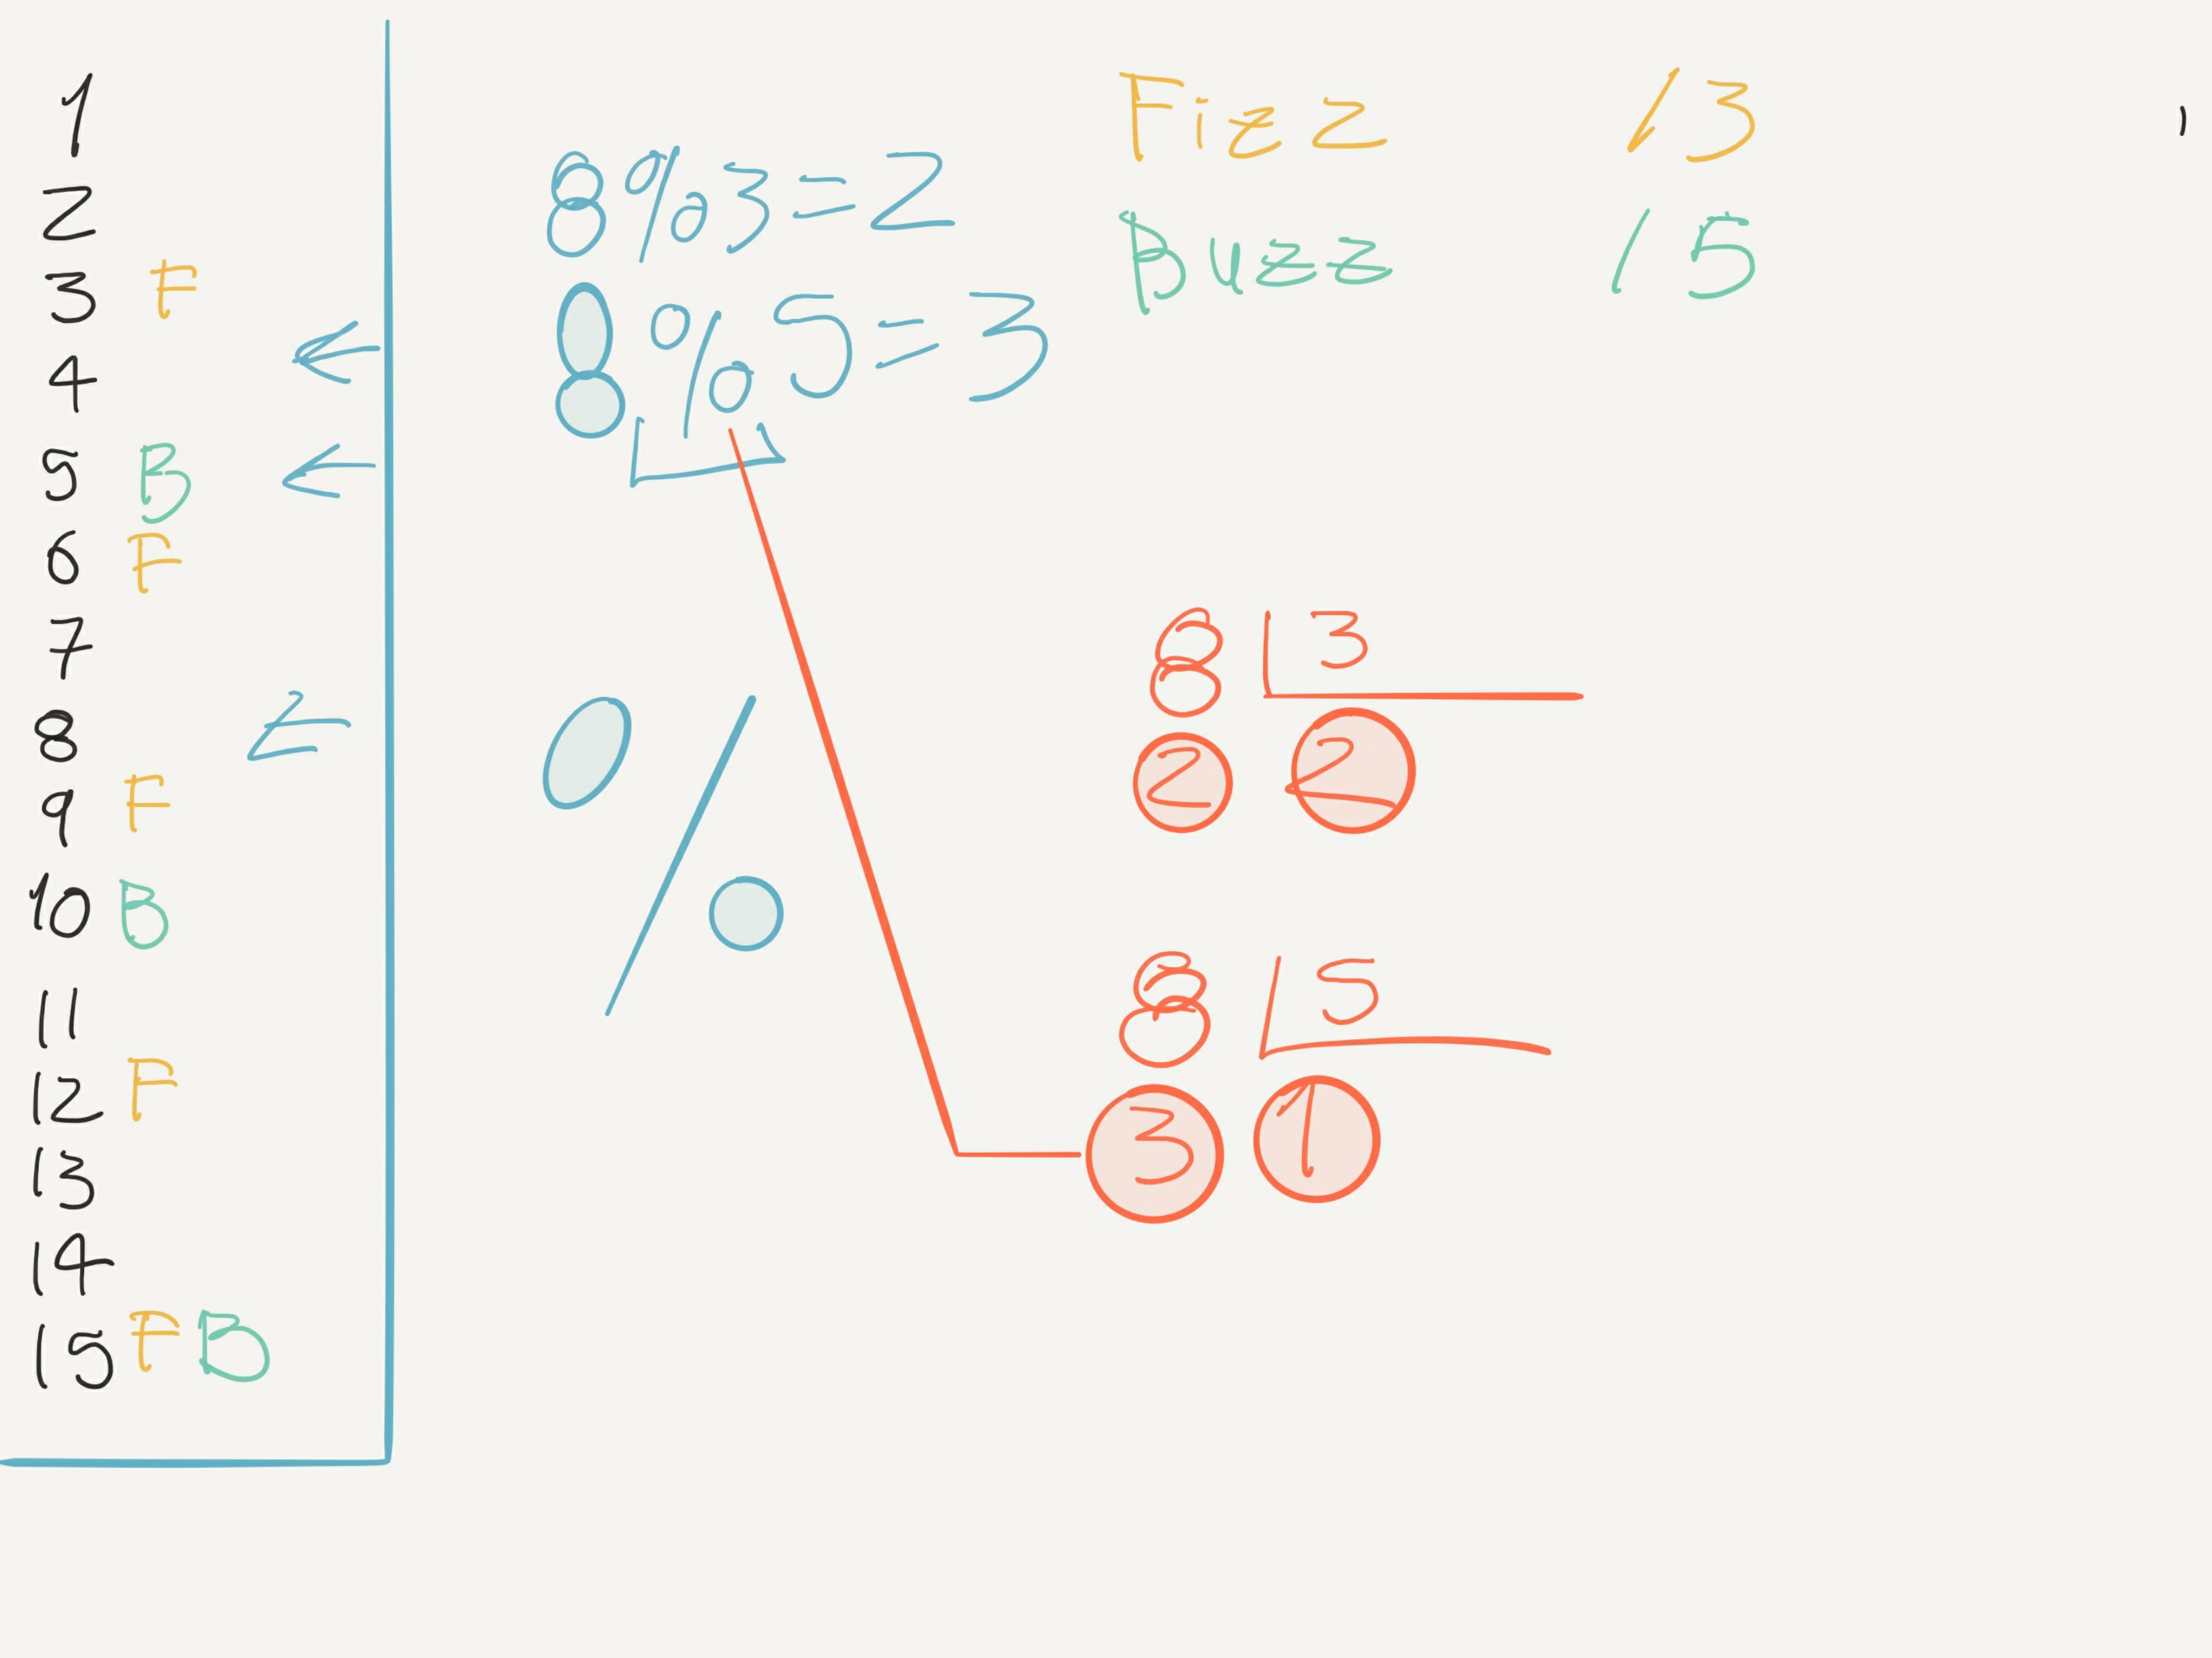 1
2
3 F
4
5 B
6 F
7
8
9 F
10 B
11
12 F
13
14
15 F B
8%3=2
8%5=3
%
Fizz /3
Buzz /5
8 3
2 2
8 5
3 1